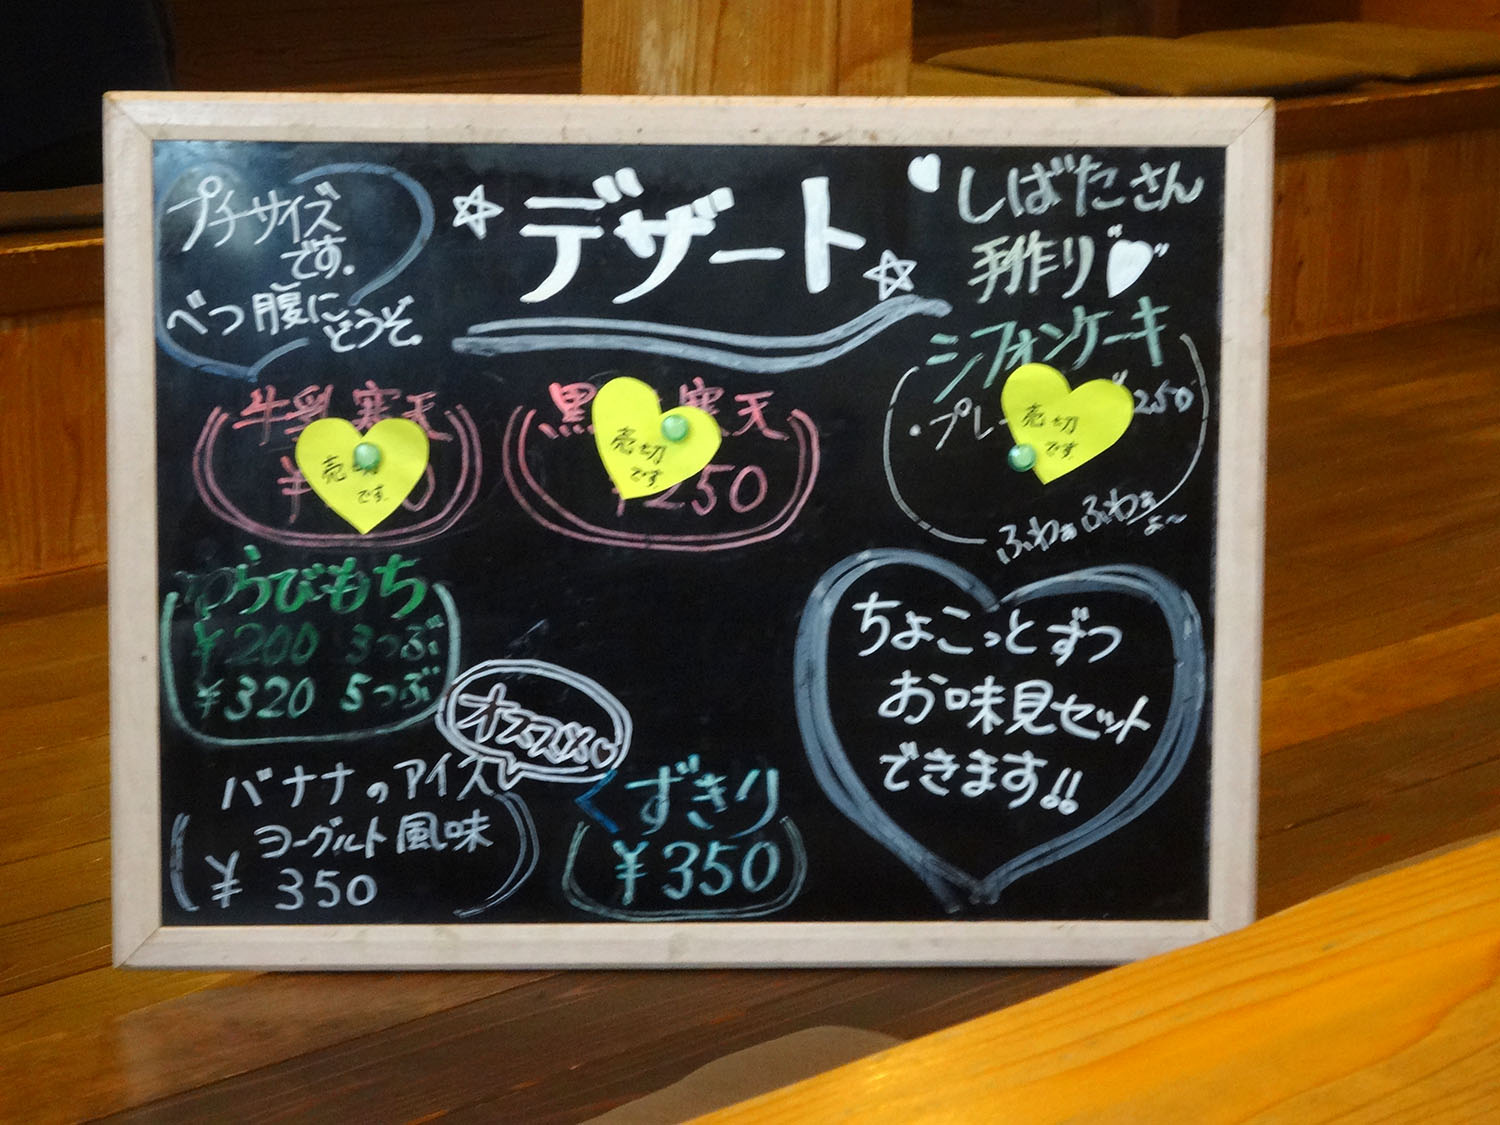 プチサイズ
です。
べつ腹に
どうぞ。
デザート
しばたさん
手作り
シフォンケーキ
・プレ
250
売切
です
ふわぁふわぁ
よ〜
牛乳寒天
¥
0
売切
です.
黒 寒天
¥250
売切
です.
わらびもち
¥200 3つぶ
¥320 5つぶ
オススメ
バナナのアイス
ヨーグルト風味
¥350
くずきり
¥350
ちょこっとずつ
お味見セット
できます!!